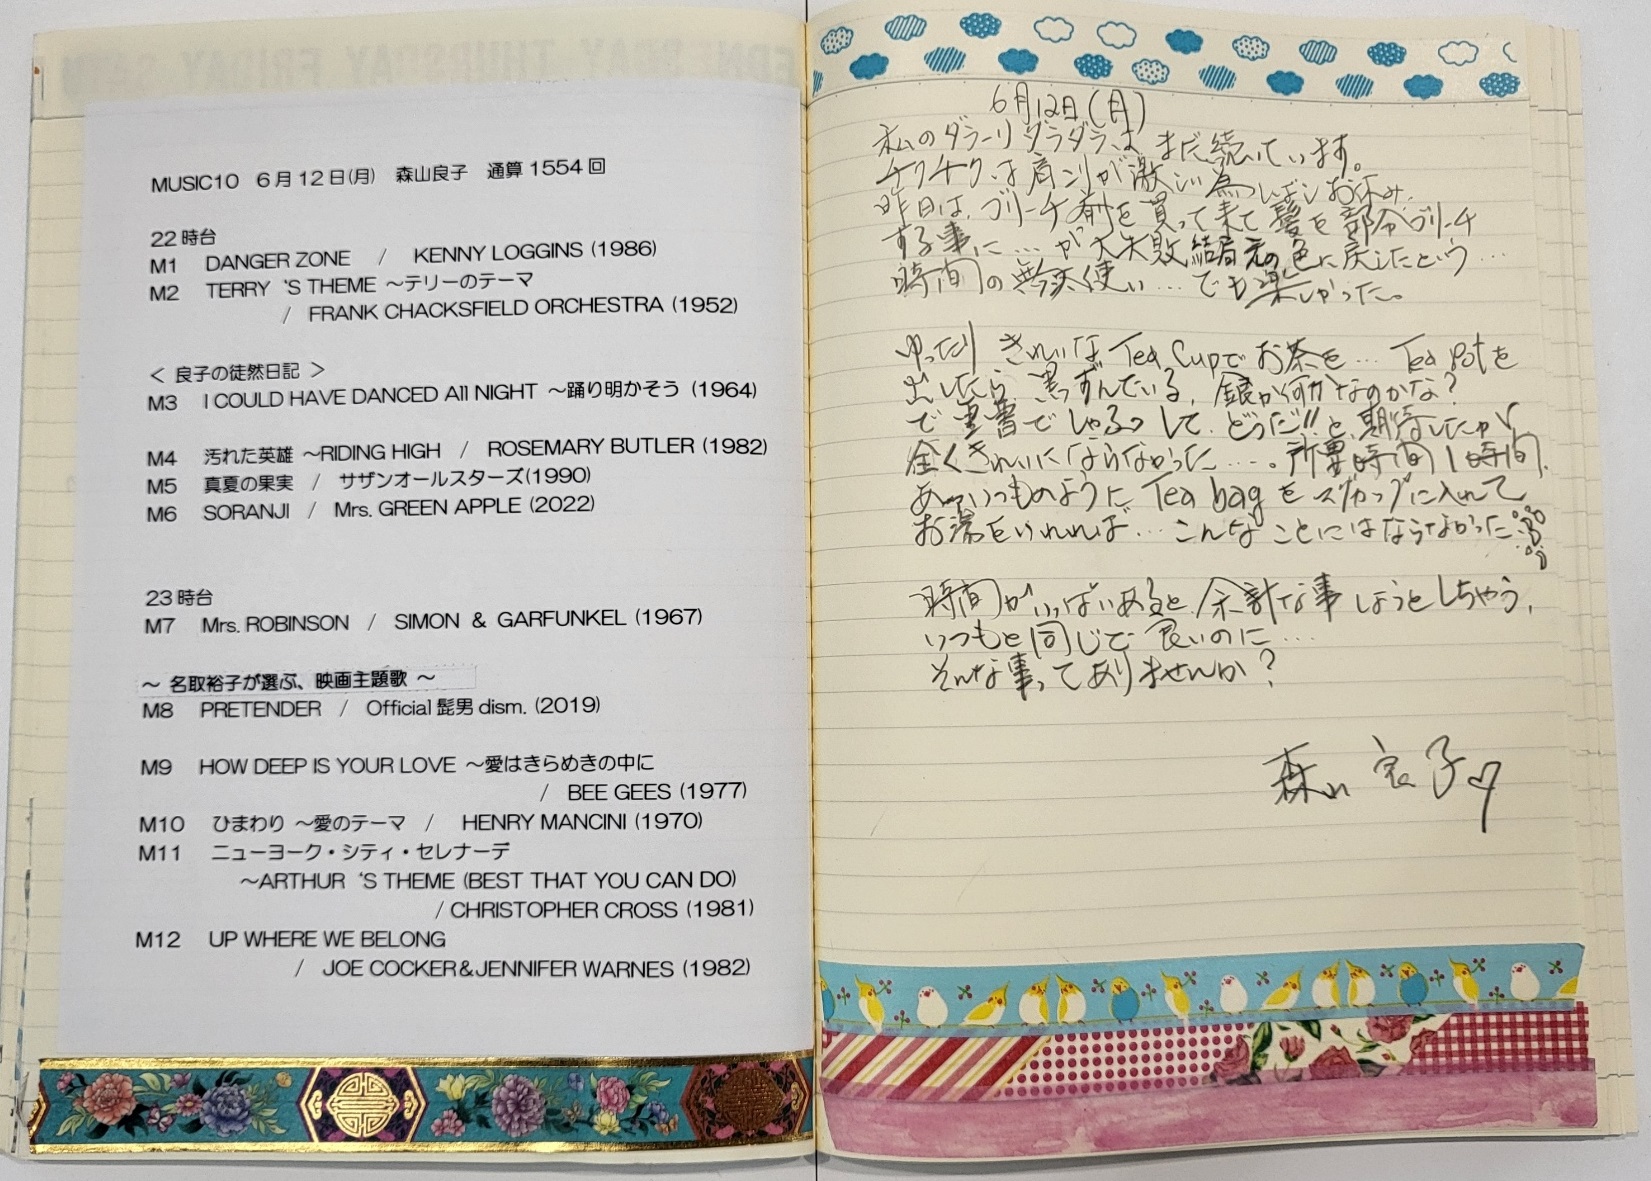 MUSIC10 6月12日(月) 森山良子 通算1554回
22時台
M1 DANGER ZONE / KENNY LOGGINS (1986)
M2 TERRY 'S THEME ～テリーのテーマ
/ FRANK CHACKSFIELD ORCHESTRA (1952)
＜ 良子の徒然日記 ＞
M3 I COULD HAVE DANCED All NIGHT ～踊り明かそう (1964)
M4 汚れた英雄 ～RIDING HIGH / ROSEMARY BUTLER (1982)
M5 真夏の果実 / サザンオールスターズ(1990)
M6 SORANJI / Mrs. GREEN APPLE (2022)
23時台
M7 Mrs. ROBINSON / SIMON & GARFUNKEL (1967)
～ 名取裕子が選ぶ、映画主題歌 ～
M8 PRETENDER / Official髭男dism. (2019)
M9 HOW DEEP IS YOUR LOVE ～愛はきらめきの中に
/ BEE GEES (1977)
M10 ひまわり ～愛のテーマ / HENRY MANCINI (1970)
M11 ニューヨーク・シティ・セレナーデ
～ARTHUR 'S THEME (BEST THAT YOU CAN DO)
/ CHRISTOPHER CROSS (1981)
M12 UP WHERE WE BELONG
/ JOE COCKER&JENNIFER WARNES (1982)
6月12日(月)
私のダラーリダラダラは まだ続いています。
チクチクは肩コリが激しい為しばしお休み.
昨日は、ブリーチ剤を買って来て髪を部分ブリーチ
する事に…が大失敗 結局元の色に戻したという…
時間の無駄使い…でも楽しかった。
ゆったり きれいなTea CupでおTea を… Tea Potを
出したら 黒っずんでいる, 銀か何かなのかな?
で 重曹でしゃぶっして. どうだ!! と期待したが
全くきれいにならなかった…。所要時間1時間.
あーいつものように Tea bagをマグカップに入れて
お湯をいれれば…こんなことにはならなかった
時間がいっぱいあると, 余計な事しようとしちゃう,
いつもと同じで良いのに…
そんな事ってありませんか?
森山良子